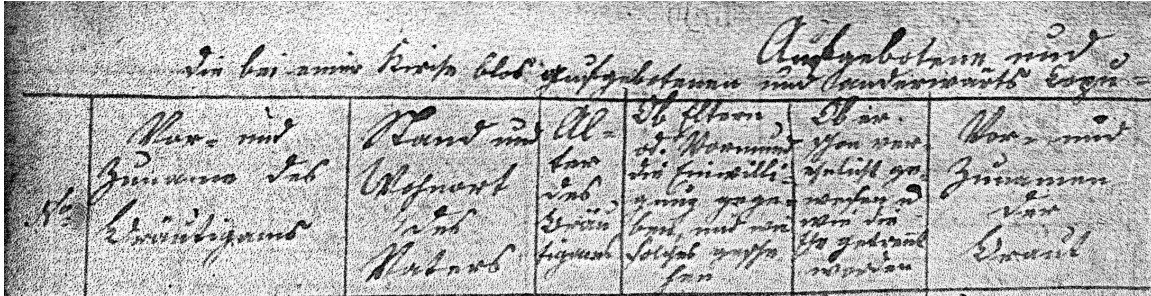 Aufgebotene und
die bei einer Kirche blos aufgebotenen und anderwärts kopu=
No
Vor- und
Zuname des
Bräutigams
Stand und
Wohnort
des
Vaters
Al-
ter
des
Bräu
tigams
Ob Eltern
od. Vormund
die Einwilli-
gung gege-
ben, und wie
solches gesche
hen
Ob er
schon ver-
ehelicht ge-
wesen u
wie die
Ehe getrennt
worden
Vor- und
Zunamen
der
Braut